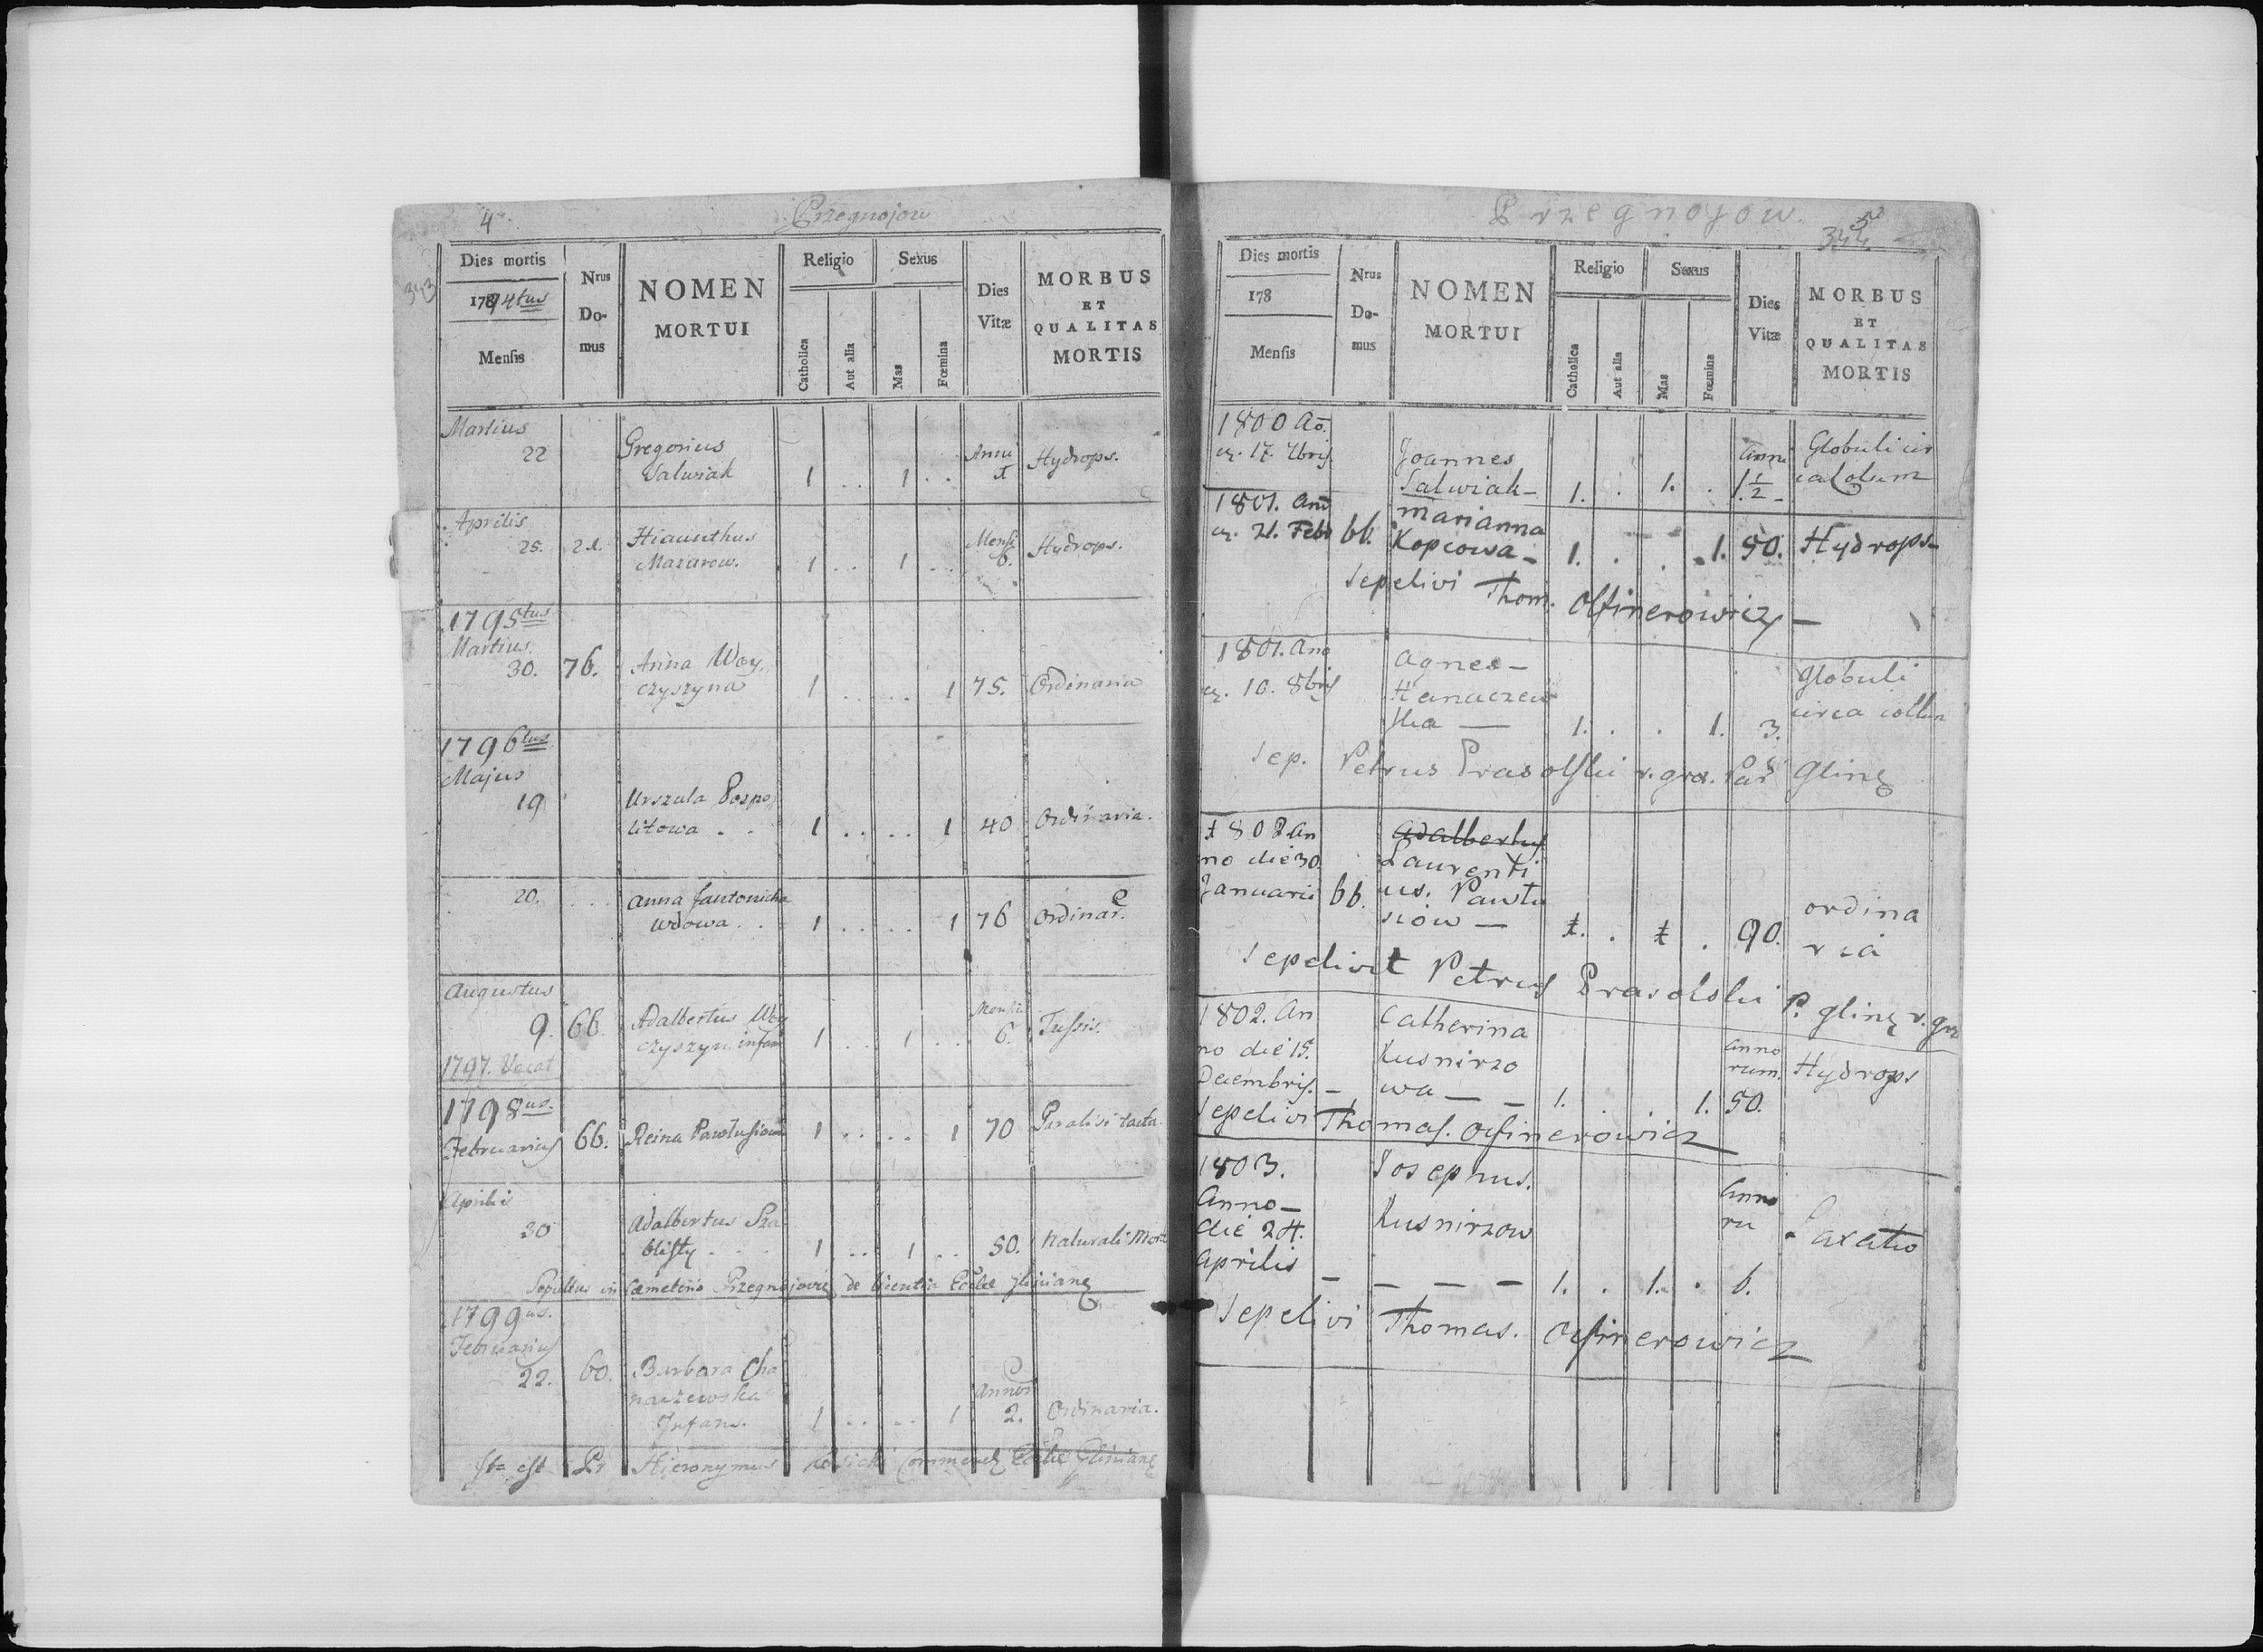 4
Przegnojow
343
Dies mortis
1794tus
Mensis
Nrus
Do-
mus
NOMEN
MORTUI
Religio
Catholica
Aut alia
Sexus
Mas
Fœmina
Dies
Vitæ
MORBUS
ET
QUALITAS
MORTIS
Martius
22 Gregorius Anni
Salwiak 1 . . 1 . . Hydrops.
Aprilis
25. Hiacinthus Mensi
Mazurow. 1 . . 1 . . 6. Hydrops.
1795tus
Martius.
30. 76. Anna Woy
czyszyna 1 . . . . 1 75. Ordinaria
1796tus
Majus
19 Urszula Pospo
litowa . . 1 . . . . 1 40 Ordinaria.
20. . . . Anna
Wdowa . . 1 . . . . 1 76 Ordinar.
Augustus
9. 66. Adalbertus Woy Mensi
czyszyn infans 1 . . 1 . . 6. Tussis.
1797. Vacat
1798us.
Februarius 66. Reina 1 . . . . 1 70 Paralisi tacta
Aprilis
30 Adalbertus
1 . . 1 . . 50. Naturali
Sepultus in Cæmeterio de licentia Ecclæ
1799us.
Februarius
22. 60. Barbara Cha
naczewska Annor
Infans. 1 . . . . 1 2. Ordinaria.
Ita est Pr Hieronymus Ecclæ
Przegnoyow.
344
5
Dies mortis
178
Mensis
Nrus
Do-
mus
NOMEN
MORTUI
Religio
Catholica
Aut alia
Sexus
Mas
Fœmina
Dies
Vitæ
MORBUS
ET
QUALITAS
MORTIS
1800 Ao.
17. 7bris Joannes Anni Globuli cir
Salwiak- 1. . 1. . 1.½- ca Colum
1801. Ano Marianna
21. Feb 66. Kopcowa- 1. . . 1. 50. Hydrops-
Sepelivi Thom. Olfinerowicz -
1801. Ano Agnes- Globuli
10. 8bris Hanaczew circa collum
ska - 1. . . 1. 3.
Sep. Petrus Prasolski r. gra. Par Glinę
1802 An Adalbertus
no die 30. Laurenti
Januarii 66. us. Pawlu ordina
siow - 1. . 1 . 90. ria
Sepelivit Petrus Prasolski P. glinę r. gra
1802. An Catherina
no die 15. Kusnirzo Anno
Decembris. - wa - - 1. . . 1. rum. 50. Hydrops
Sepelivi Thomas. Olfinerowicz
1803. Josephus.
Anno- Anno
die 24. Kusnirzow ru Laxatio
Aprilis - - - - 1. . 1. . 6.
Sepelivi Thomas. Olfinerowicz